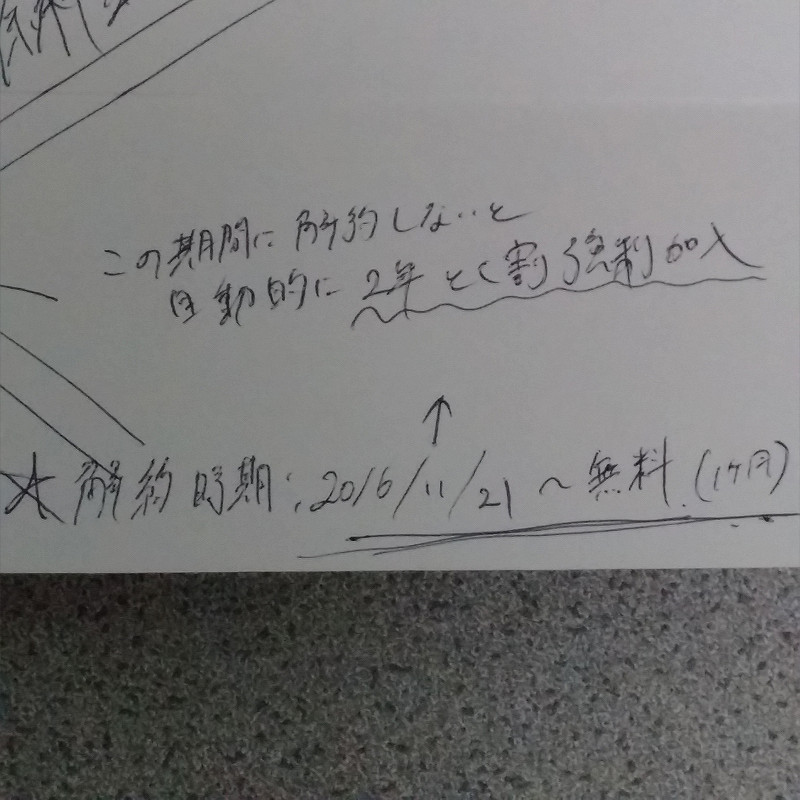 この期間に解約しないと
自動的に2年とく割強制加入
↑
★解約時期:2016/11/21〜無料(1ヶ月)